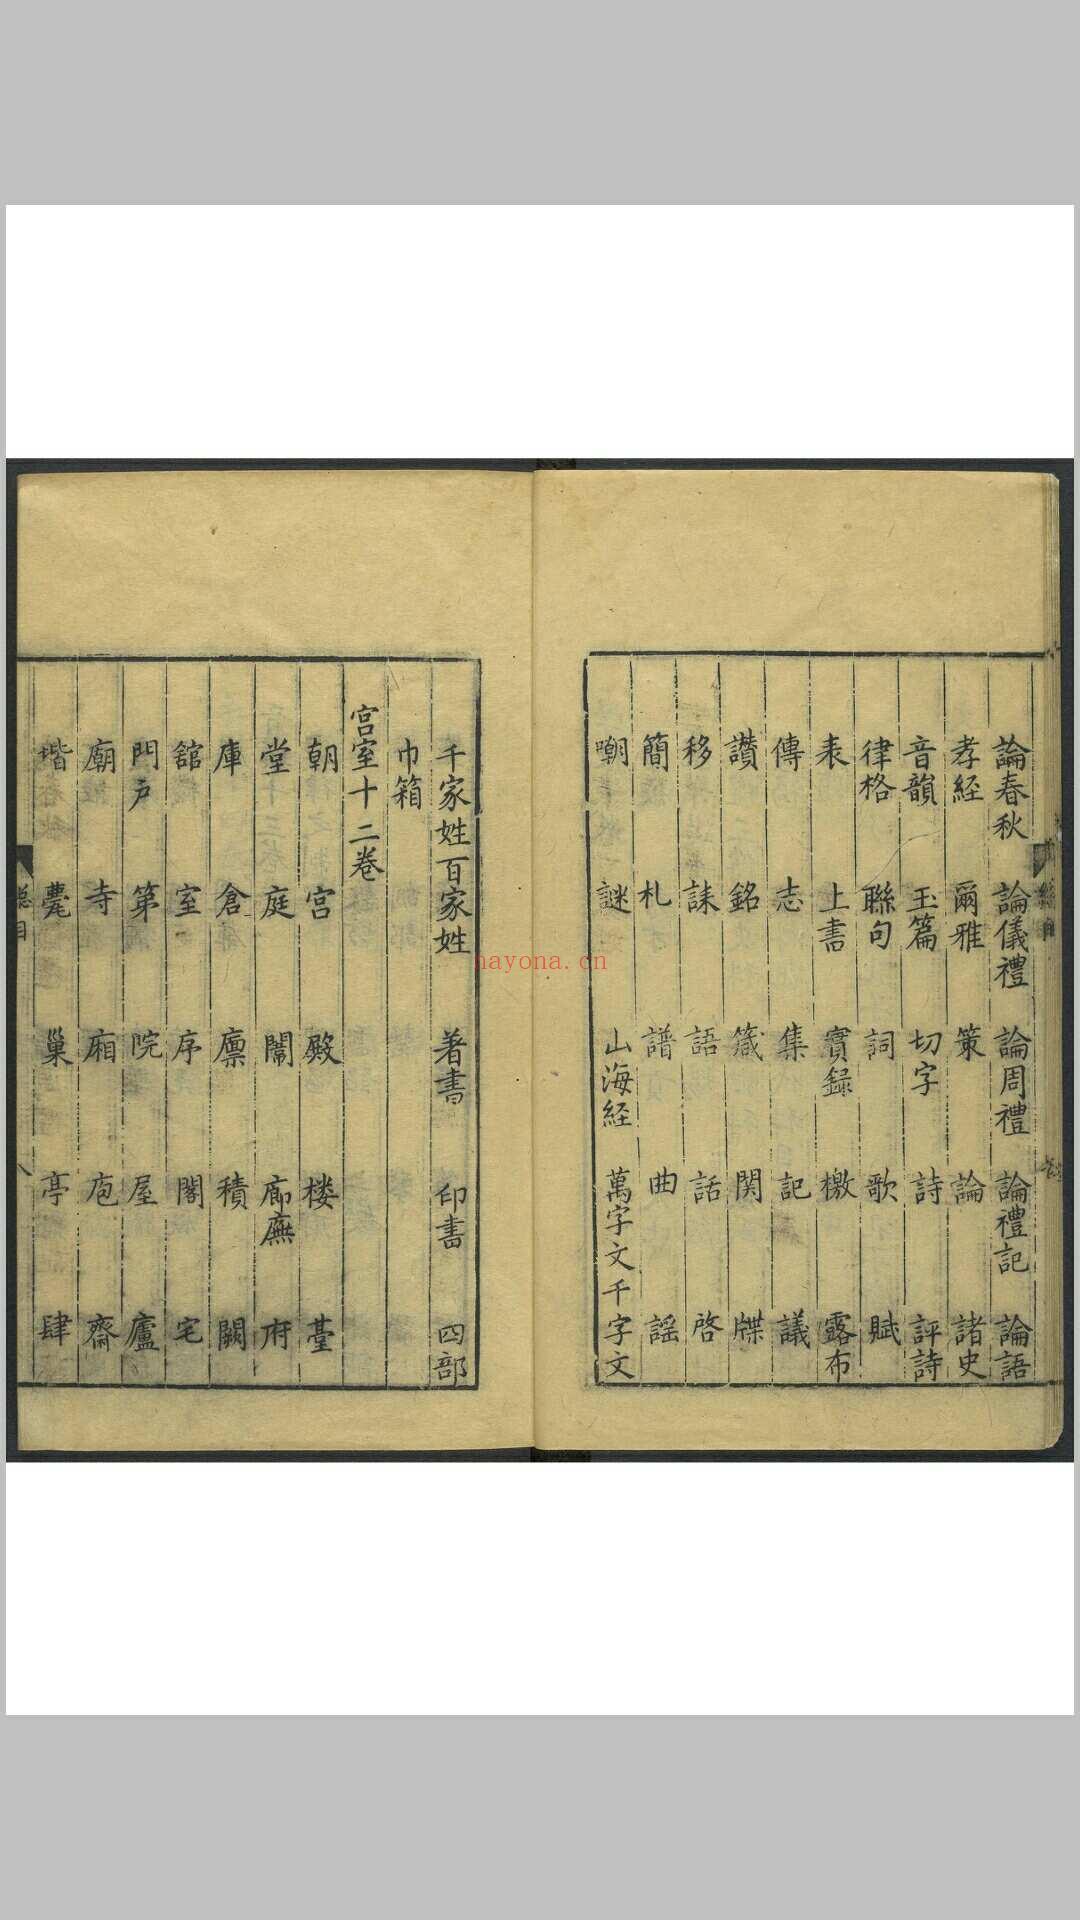 論春秋 論儀禮 論周禮 論禮記 論語
孝経 爾雅 策 論 諸史
音韻 玉篇 切字 詩 評詩
律格 聯句 詞 歌 賦
表 上書 實録 檄 露布
傳 志 集 記 議
讃 銘 箴 関 牒
移 誄 語 話 啓
簡 札 譜 曲 謡
嘲 謎 山海経 萬字文千字文
千家姓百家姓 著書 印書 四部
巾箱
宫室十二卷
朝 宫 殿 楼 臺
堂 庭 闈 廊廡 府
庫 倉 廪 積 闕
舘 室 序 閣 宅
門戸 第 院 屋 廬
廟 寺 廂 庖 齋
堦 甍 巢 亭 肆
總目
nayona.cn